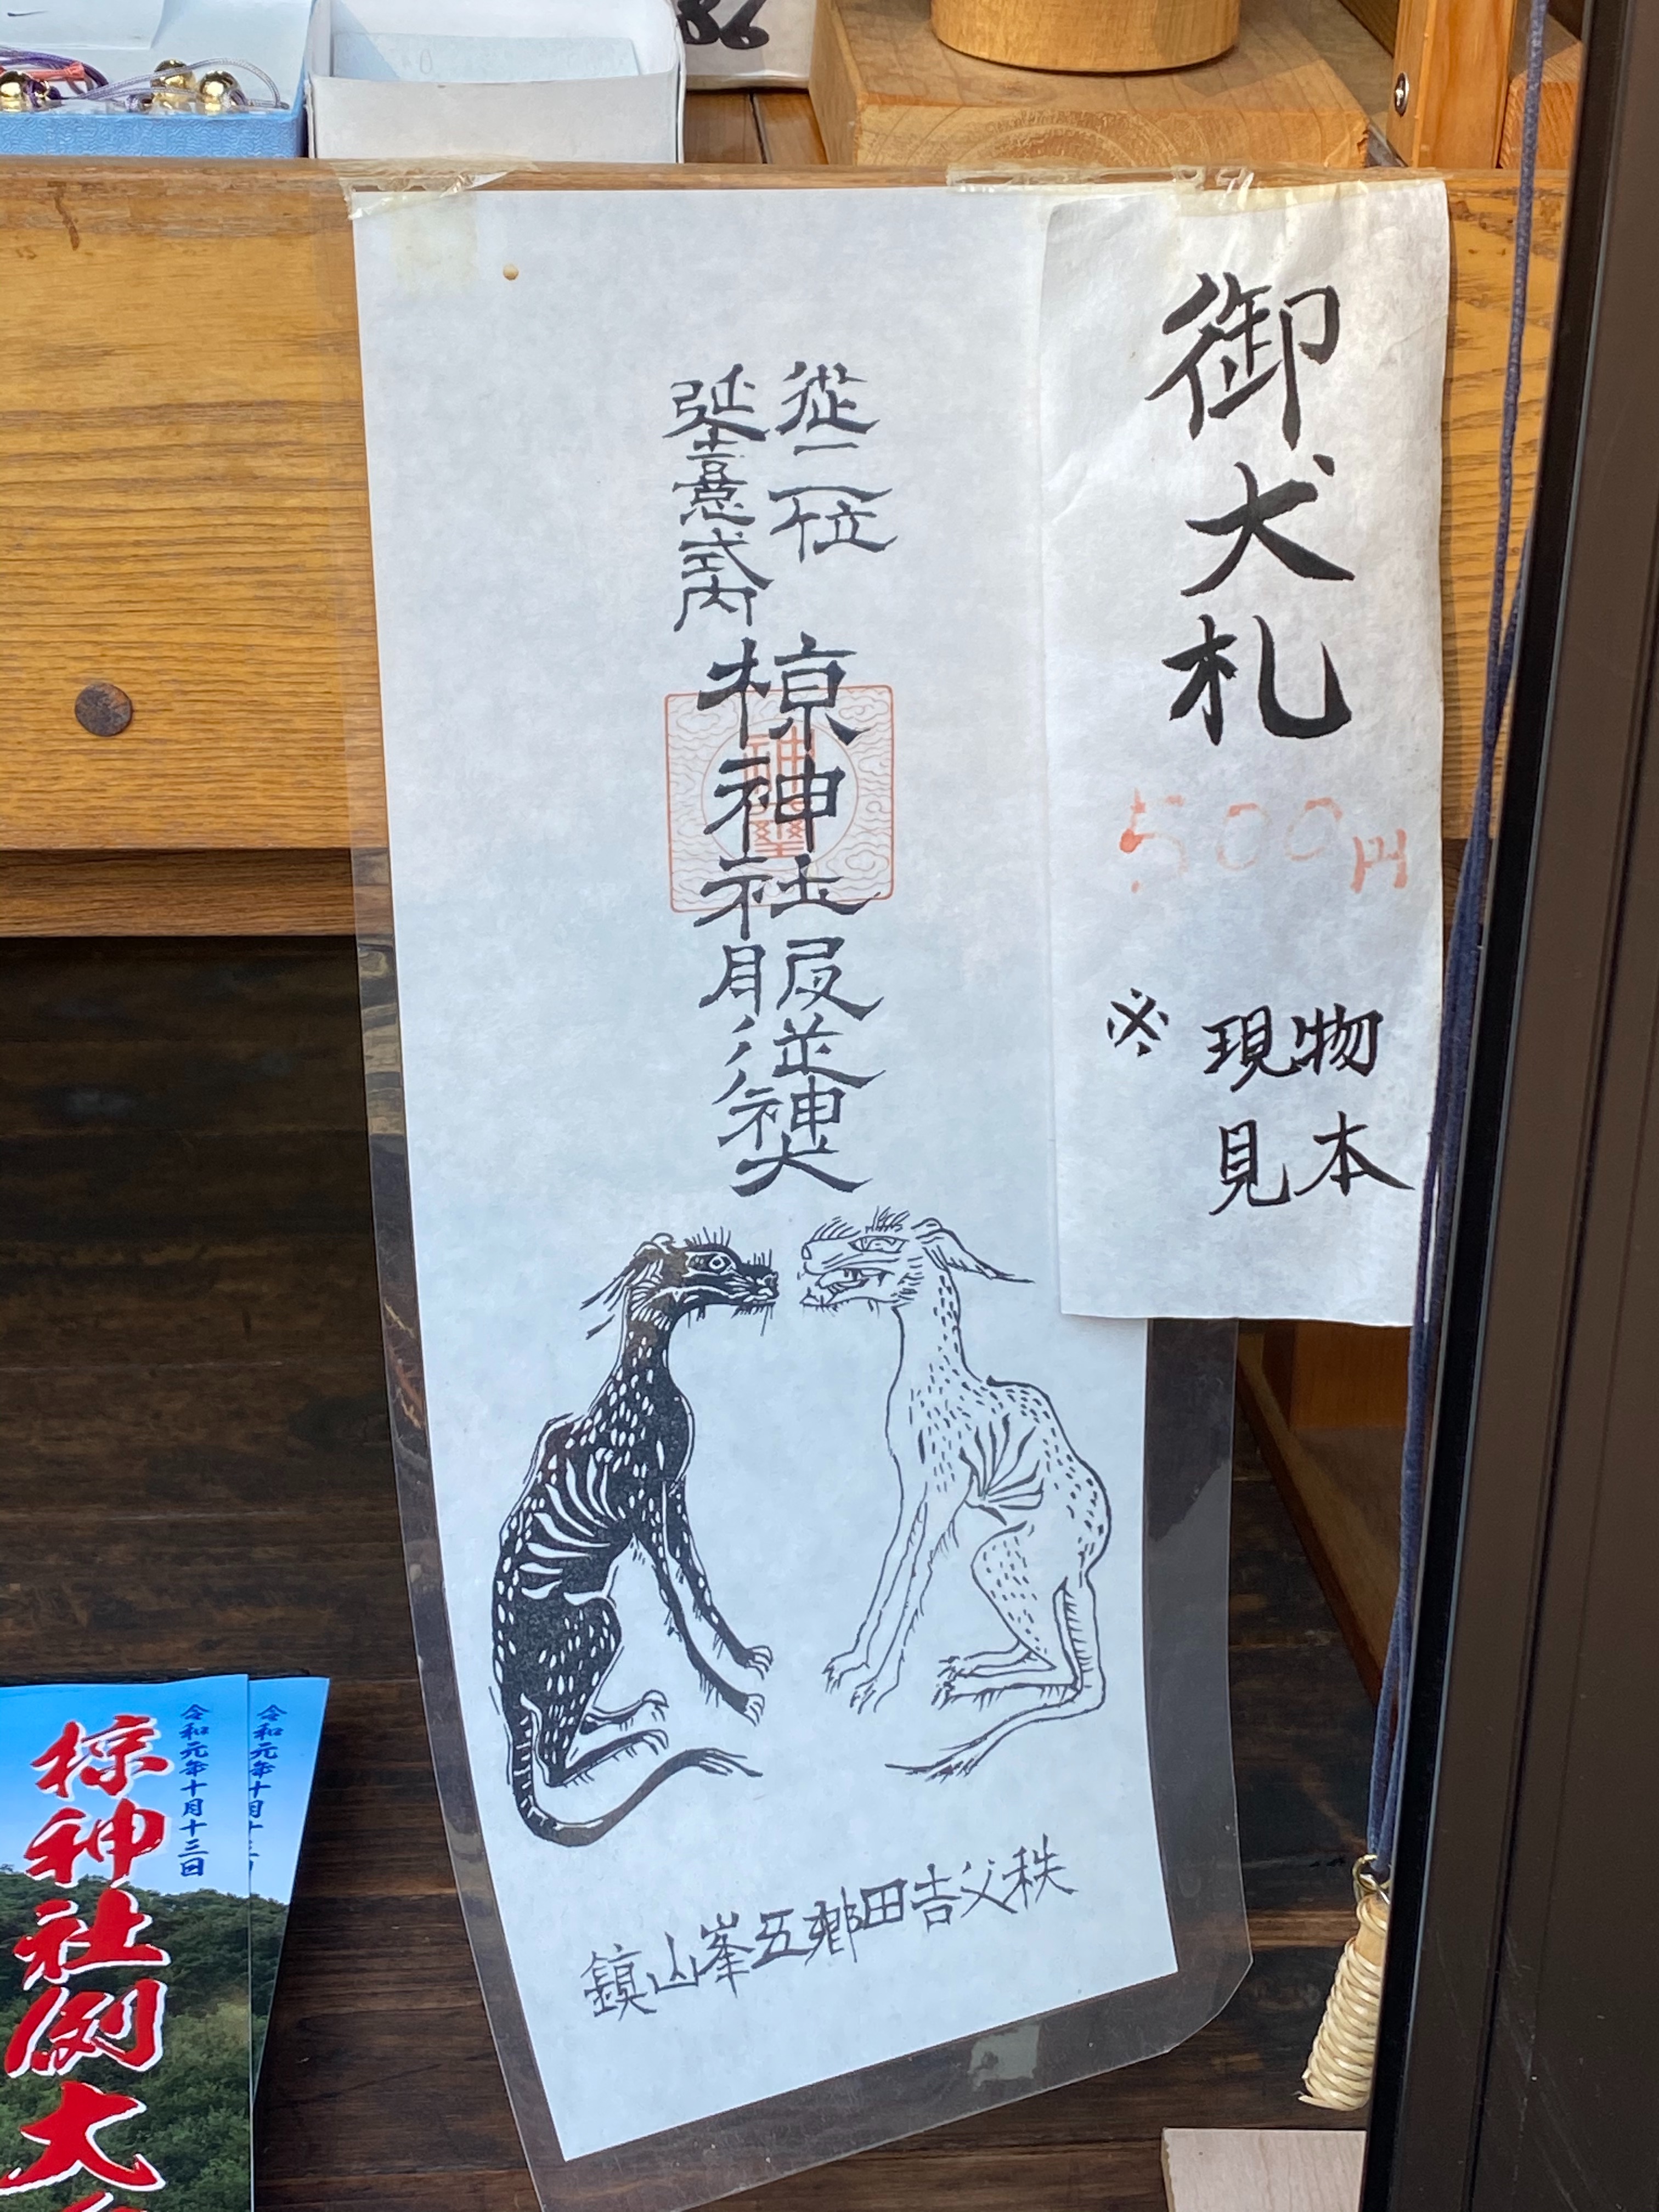 御犬札
500円
※現物
見本
從二位
延喜式内
椋神社服從神犬
秩父吉田郷五峯山鎮
令和元年十月十三日
令和元年十月十三日
椋神社例大